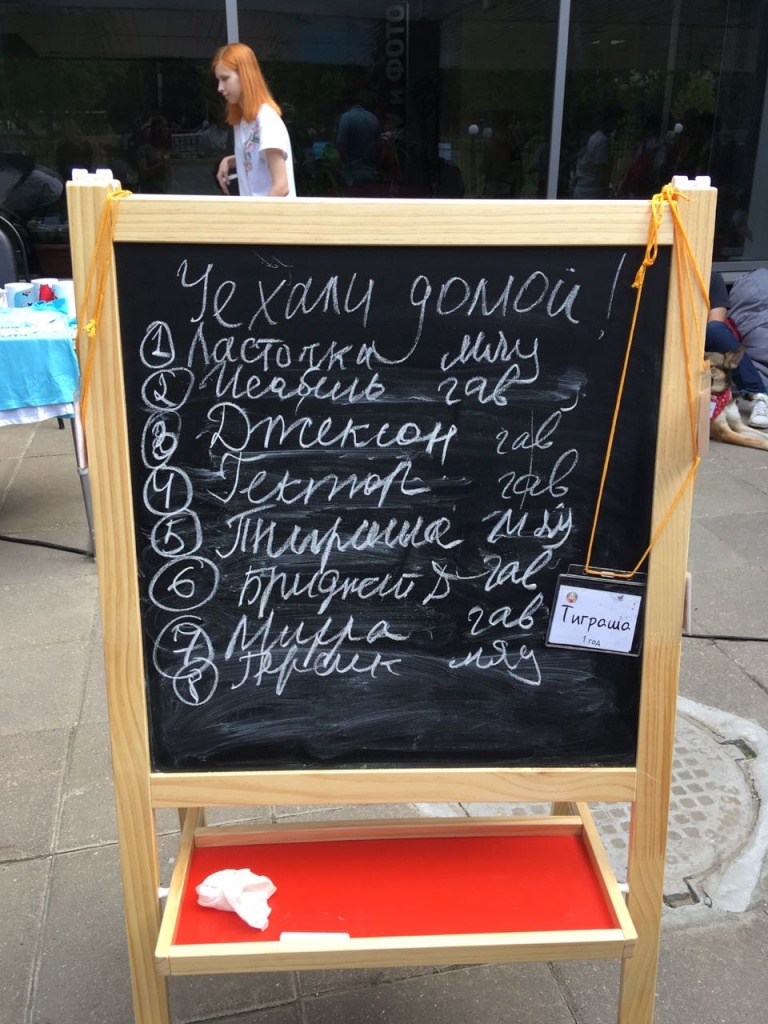 и ФОТО
Уехали домой!
1 Ласточка мяу
2 Исабель гав
3 Джексон гав
4 Гектор гав
5 Тиграша мяу
6 Бриджит Д гав
7 Милла гав
8 Персик мяу
Тиграша
1 год